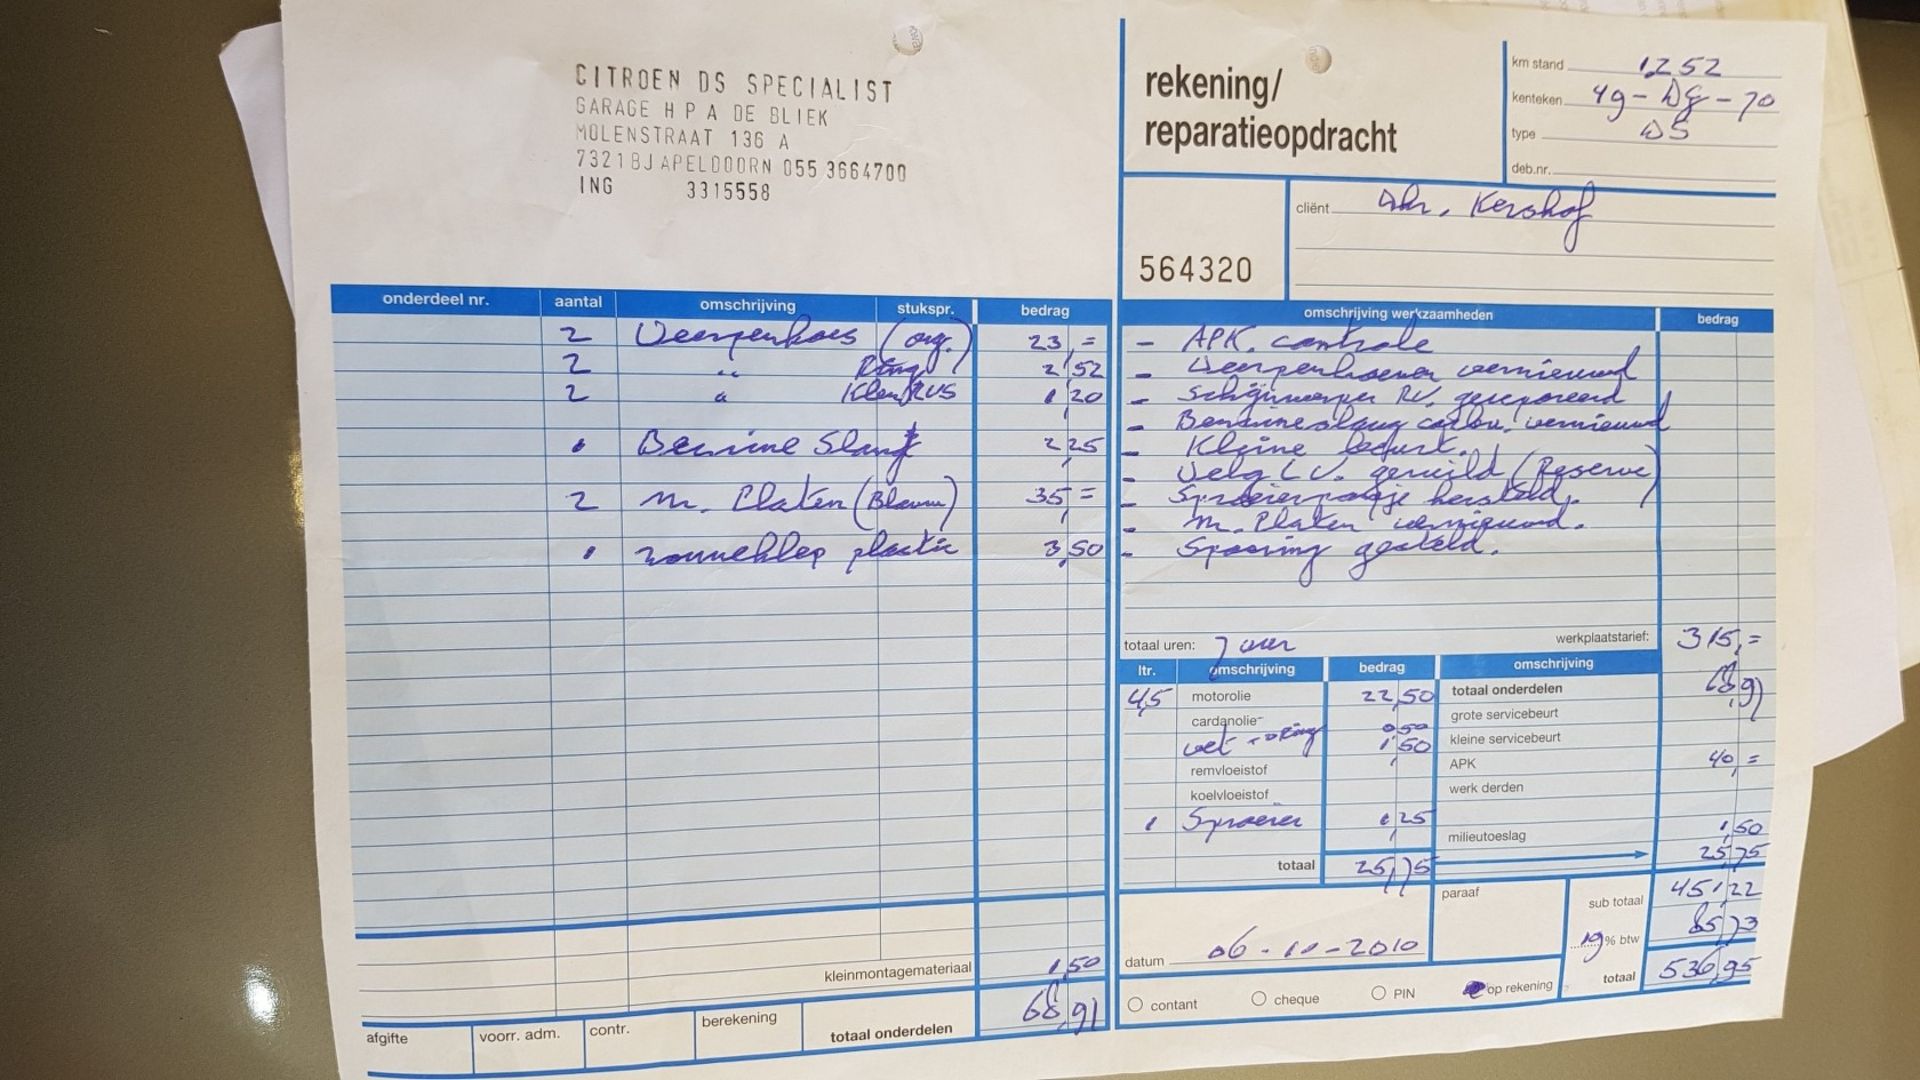 CITROEN DS SPECIALIST
GARAGE H P A DE BLIEK
MOLENSTRAAT 136 A
7321BJ APELDOORN 055 3664700
ING 3315558
rekening/
reparatieopdracht
km stand 1252
kenteken 49-DG-70
type DS
deb.nr.
564320
cliënt Dhr. Kershof
onderdeel nr. aantal omschrijving stukspr. bedrag
2 Veerpenhoes (org.) 23,=
2 " Ring 2,52
2 " Klem RVS 1,20
1 Benzine Slang 2,25
2 nr. Platen (Blauw) 35,=
1 zonneklep plastic 3,50
kleinmontagemateriaal 1,50
afgifte voorr. adm. contr. berekening totaal onderdelen 68,91
omschrijving werkzaamheden bedrag
- APK. controle
- Veerpenhoezen vernieuwd
- Schijnwerper RV. gerepareerd
- Benzineslang carbu. vernieuwd
- Kleine beurt.
- Velg LV. geruild (Reserve)
- Sproeierpompje hersteld.
- nr. Platen vernieuwd.
- Spooring gesteld.
totaal uren: 7 uur werkplaatstarief: 315,=
ltr. omschrijving bedrag omschrijving
4,5 motorolie 22,50 totaal onderdelen 68,91
cardanolie 0,50 grote servicebeurt
vet 1,50 kleine servicebeurt
remvloeistof APK 40,=
koelvloeistof werk derden
1 Sproeier 1,25
milieutoeslag 1,50
totaal 25,75 25,75
paraaf sub totaal 451,22
datum 06-10-2010 19% btw 85,73
totaal 536,95
contant cheque PIN op rekening